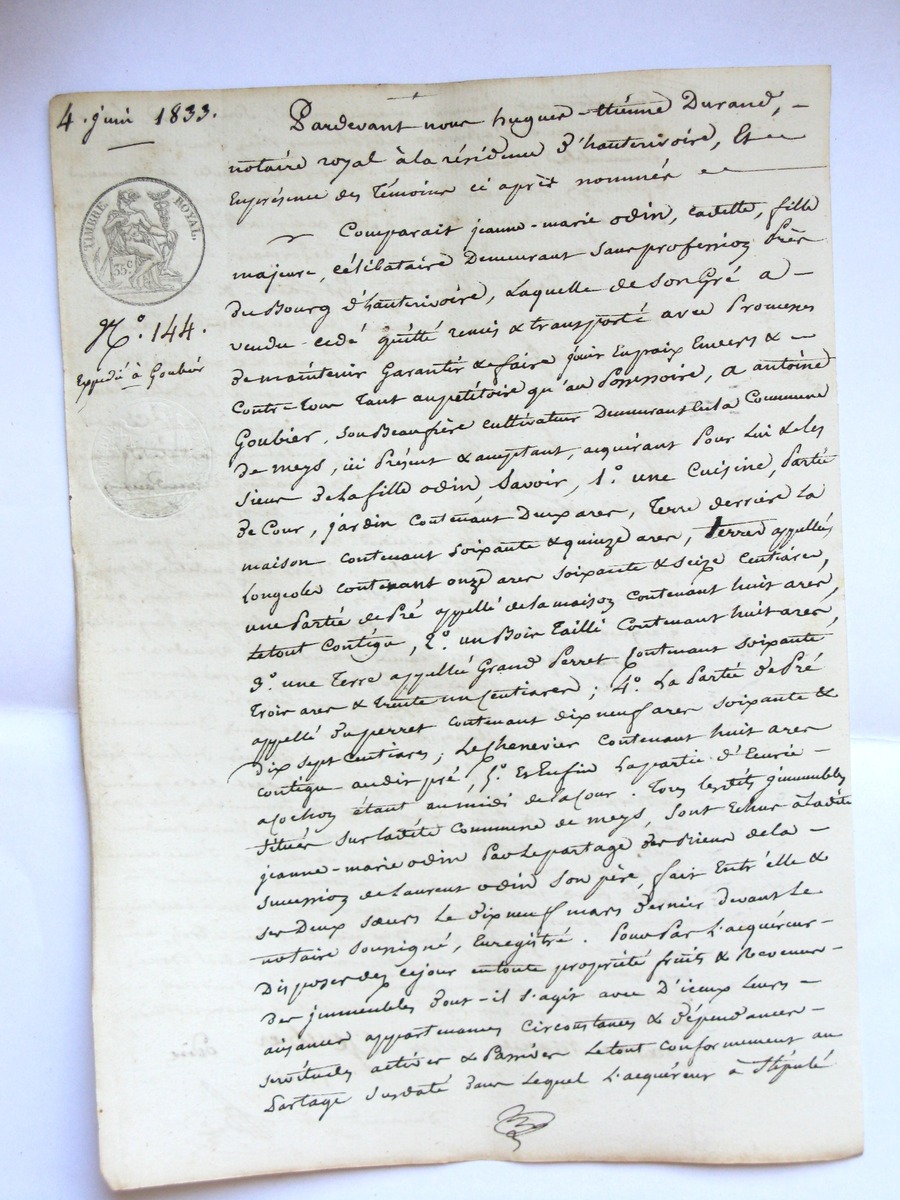 4. juin 1833.
TIMBRE ROYAL.
35 c
N.º 144.
Expédié à Goubier
Pardevant nous hugues-étienne Durand, -
notaire royal à la résidence d'hauterivoire, Et
En présence des Témoins ci après nommés
Comparait jeanne-marie odin, cadette, fille
majeure, célibataire Demeurant sans profession Près
du Bourg d'hauterivoire, Laquelle de son Gré a -
vendu cédé quitté remis & transporté avec Promesses
de maintenir Garantir & faire jouir En paix Envers & -
Contre Tous Tant au pétitoire qu'au Possessoire, a antoine
Goubier, son Beaufrère cultivateur Demeurant En la Commune
de meys, ici Présent & acceptant, acquérant Pour Lui & les
siens de la fille odin, Savoir, 1.º une Cuisine, Partie
de Cour, jardin Contenant Deux ares, Terre derrière La
maison contenant soixante & quinze ares, Terres appellées
Longeoles contenant onze ares soixante & seize Centiares,
une Partie de Pré appellé de la maison contenant huit ares,
Le tout Contigu, 2.º un Bois Taillis Contenant huit ares,
3.º une Terre appellée Grand Perret Contenant soixante
Trois ares & trente un Centiares; 4.º La Partie de Pré
appellé du perret contenant dix neuf ares soixante &
dix sept Centiares; Le Chenevier Contenant huit ares
contigu audit pré, 5.º Et Enfin La partie d'Ecurie -
a Cochon étant au midi de la Cour. Tous lesdits jmmeubles
situés sur ladite Commune de meys, sont Echus à Ladite
jeanne-marie odin Par Le partage des Biens de la -
succession de Laurent odin son père, fait Entr'elle &
ses Deux sœurs Le dix neuf mars dernier devant Le
notaire soussigné, Enregistré. Pour Par L'acquéreur -
Disposer dès ce jour en toute propriété fruits & Revenus -
des jmmeubles dont-il s'agit avec D'iceux Leurs -
aisances appartenances Circonstances & dépendances -
servitudes actives & Passives Le tout Conformement au
Partage susdaté dans Lequel L'acquéreur à Stipulé